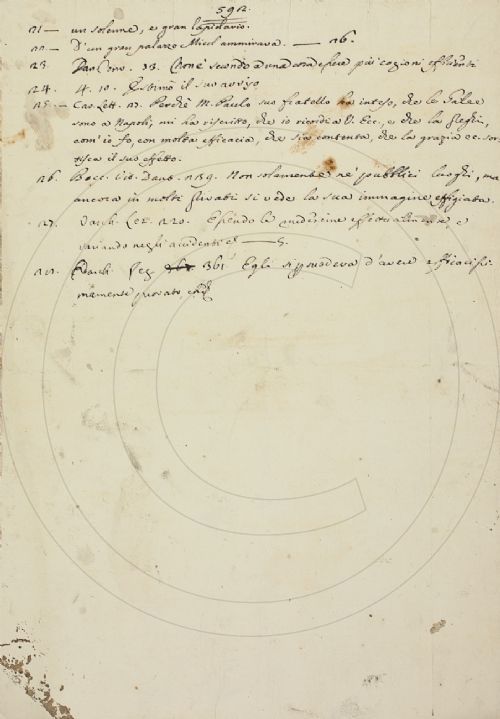 592.
21 — un solenne, e gran lapidario.
22 — D'un gran palazzo Micol ammirava. — 26.
23. Dan. Conv. 33. secondo a una cosa essere più cagioni efficienti
24. 4. 10. Estimò il suo aviso
25 — Cas. Lett. 27. Perchè M. Paulo suo fratello ha inteso, che le Galee
sono a Napoli, mi ha riscritto, che io ricordi a V. Ecc. e che la preghi,
com'io fo, con molta efficacia, che sia contenta, che la grazia ec. sor-
tisca il suo effetto.
26. Bocc. Vit. Dant. 239. Non solamente ne' pubblici luoghi, ma
ancora in molti privati si vede la sua immagine effigiata.
27. Varch. Lez. 220. Essendo le medesime e
variando negli accidenti — 5.
28. Varch. Lez. 361. Egli si persuadeva d'avere efficacissi-
mamente provato